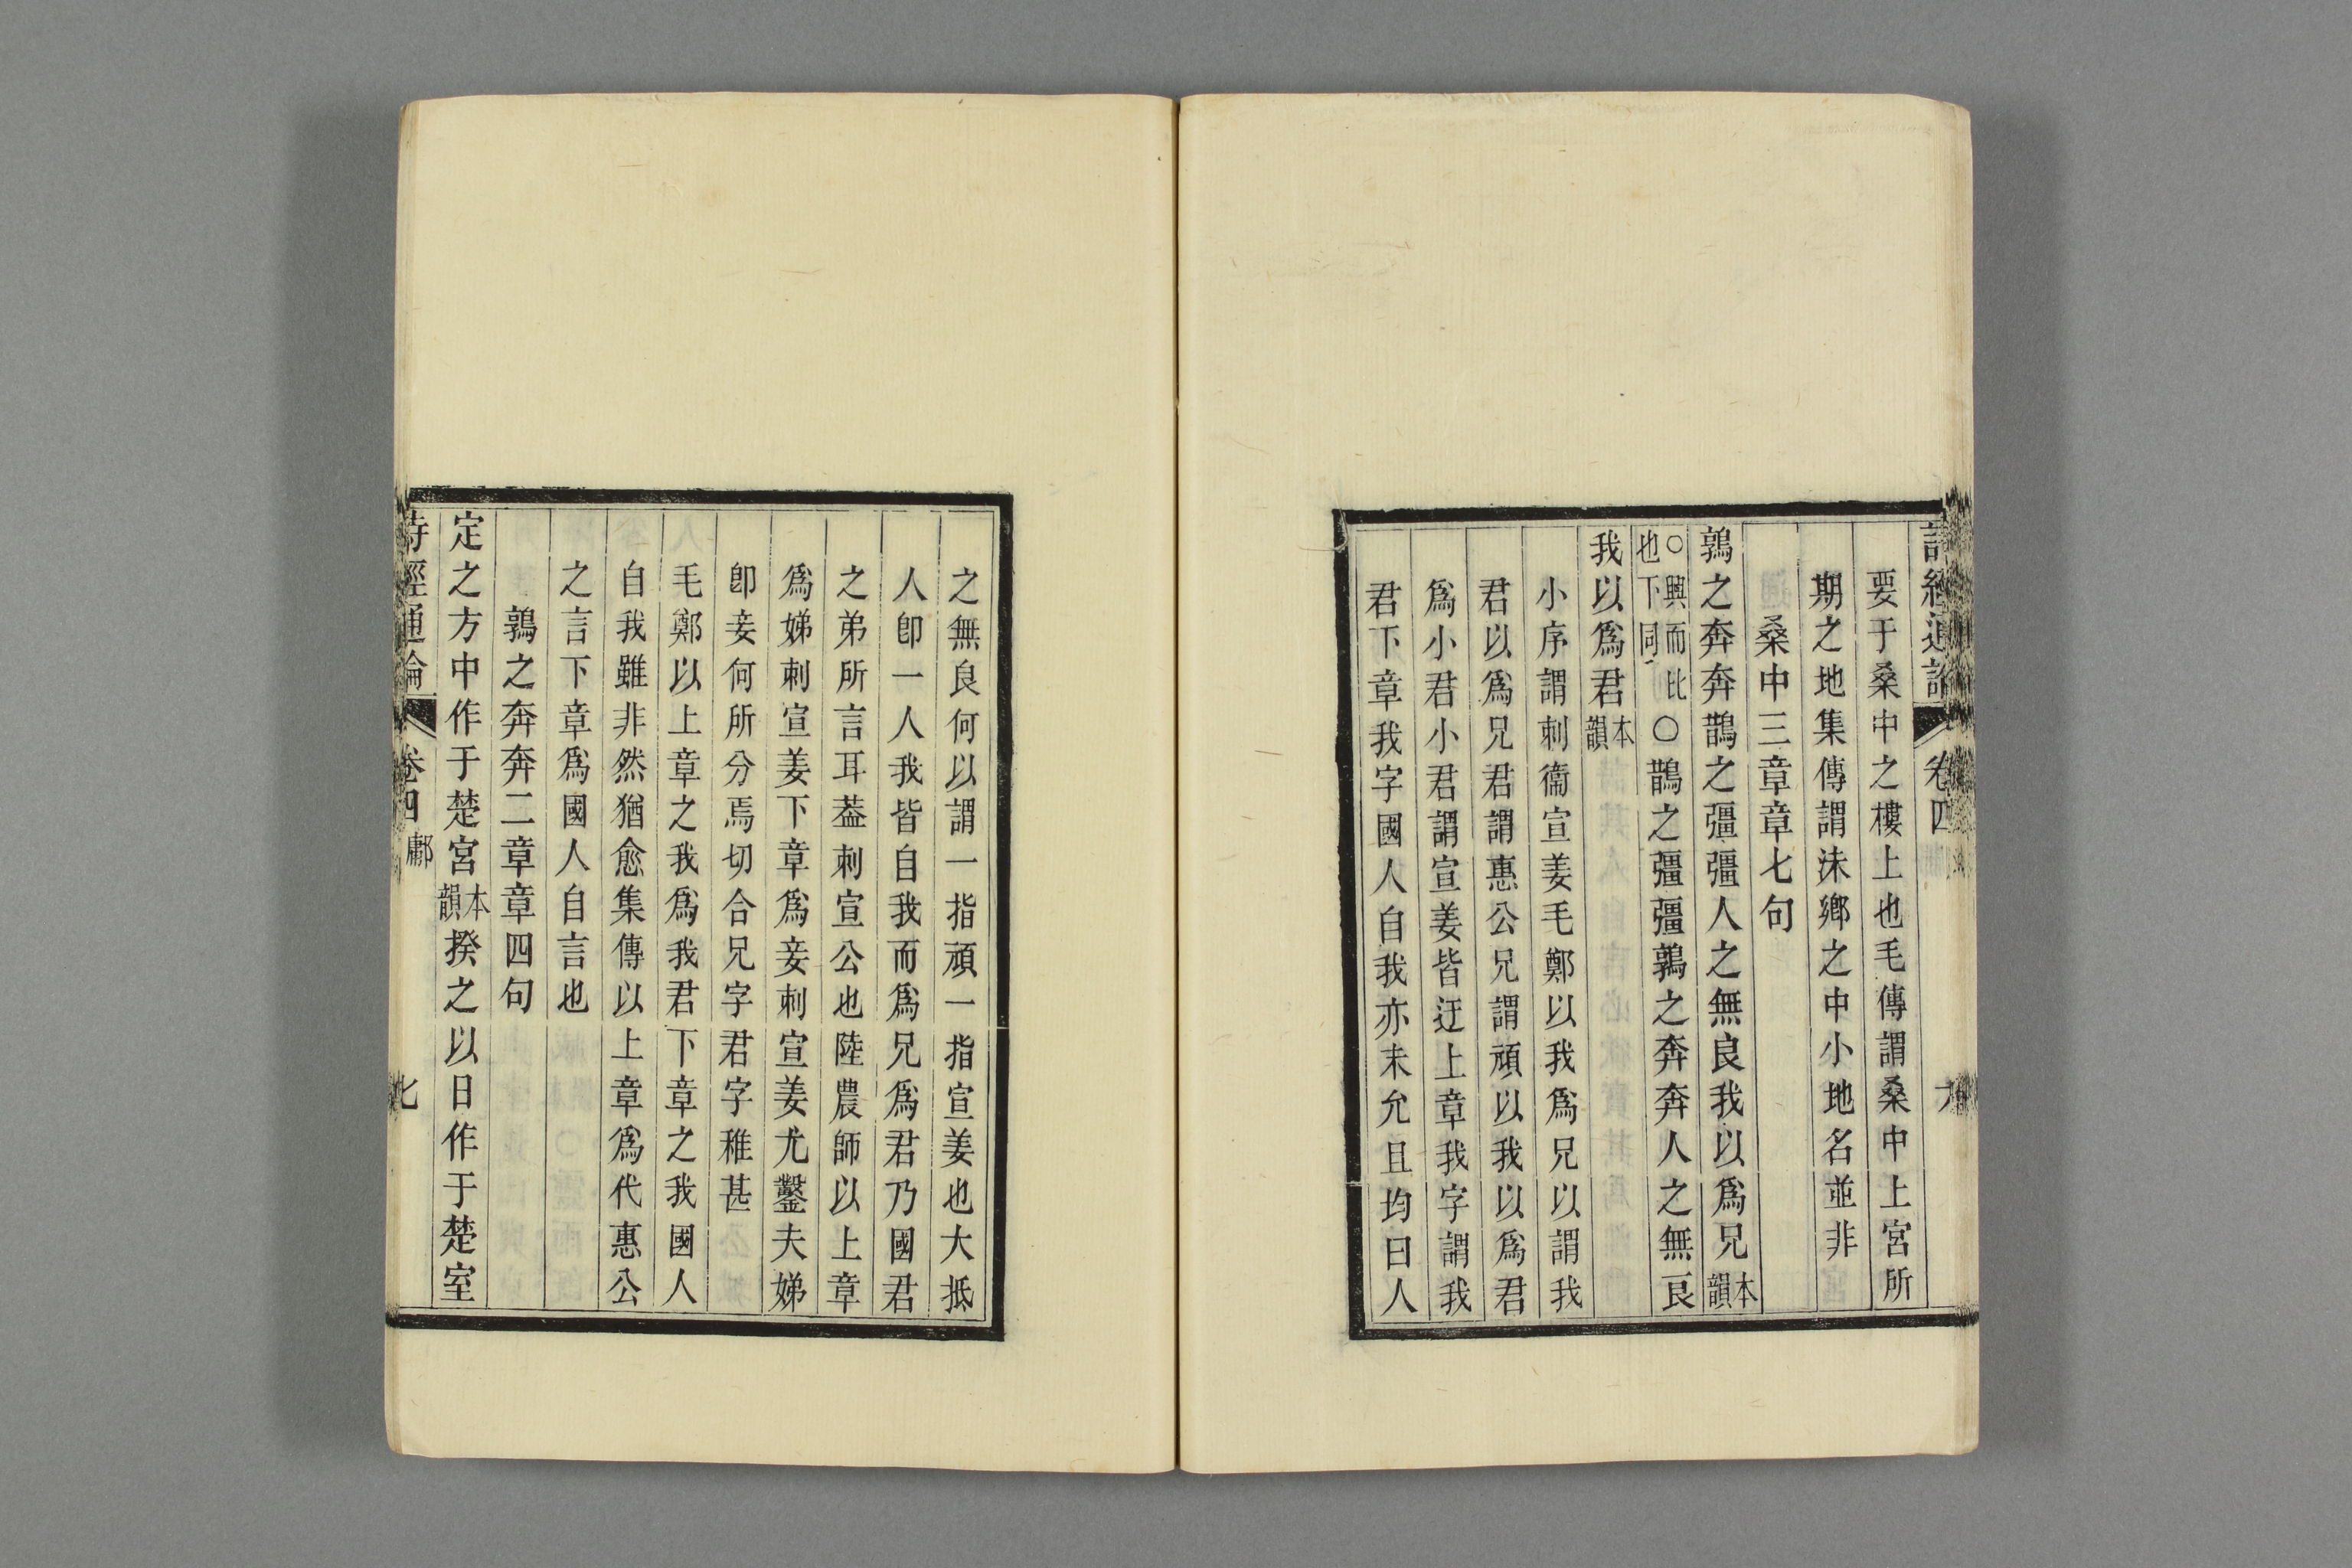 詩經通論 卷四 六
要于桑中之樓上也毛傳謂桑中上宮所
期之地集傳謂沬鄉之中小地名並非
桑中三章章七句
鶉之奔奔鵲之彊彊人之無良我以爲兄本韻
○興而比也下同○鵲之彊彊鶉之奔奔人之無良
我以爲君本韻
小序謂刺衞宣姜毛鄭以我爲兄以謂我
君以爲兄君謂惠公兄謂頑以我以爲君
爲小君小君謂宣姜皆迂上章我字謂我
君下章我字國人自我亦未允且均曰人
之無良何以謂一指頑一指宣姜也大抵
人卽一人我皆自我而爲兄爲君乃國君
之弟所言耳葢刺宣公也陸農師以上章
爲娣刺宣姜下章爲妾刺宣姜尤鑿夫娣
卽妾何所分焉切合兄字君字稚甚
毛鄭以上章之我爲我君下章之我國人
自我雖非然猶愈集傳以上章爲代惠公
之言下章爲國人自言也
鶉之奔奔二章章四句
定之方中作于楚宮本韻揆之以日作于楚室
詩經通論 卷四 鄘 七